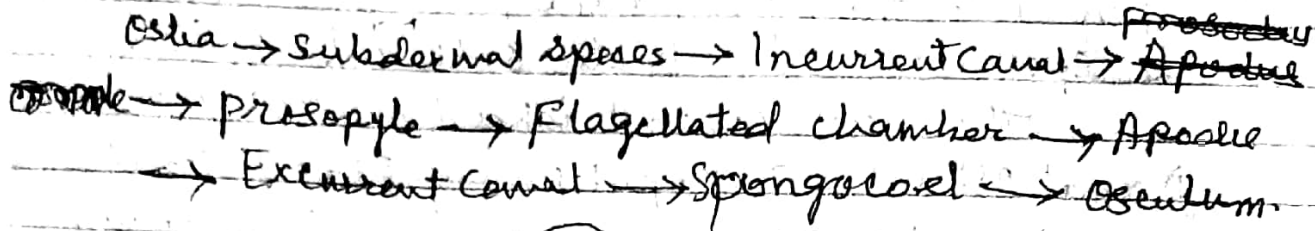 Ostia → Subdermal spases → Incurrent Canal →
→ Prosopyle → Flagellated chamber → Apodie
→ Excurrent Canal → Spongocoel → Osculum.